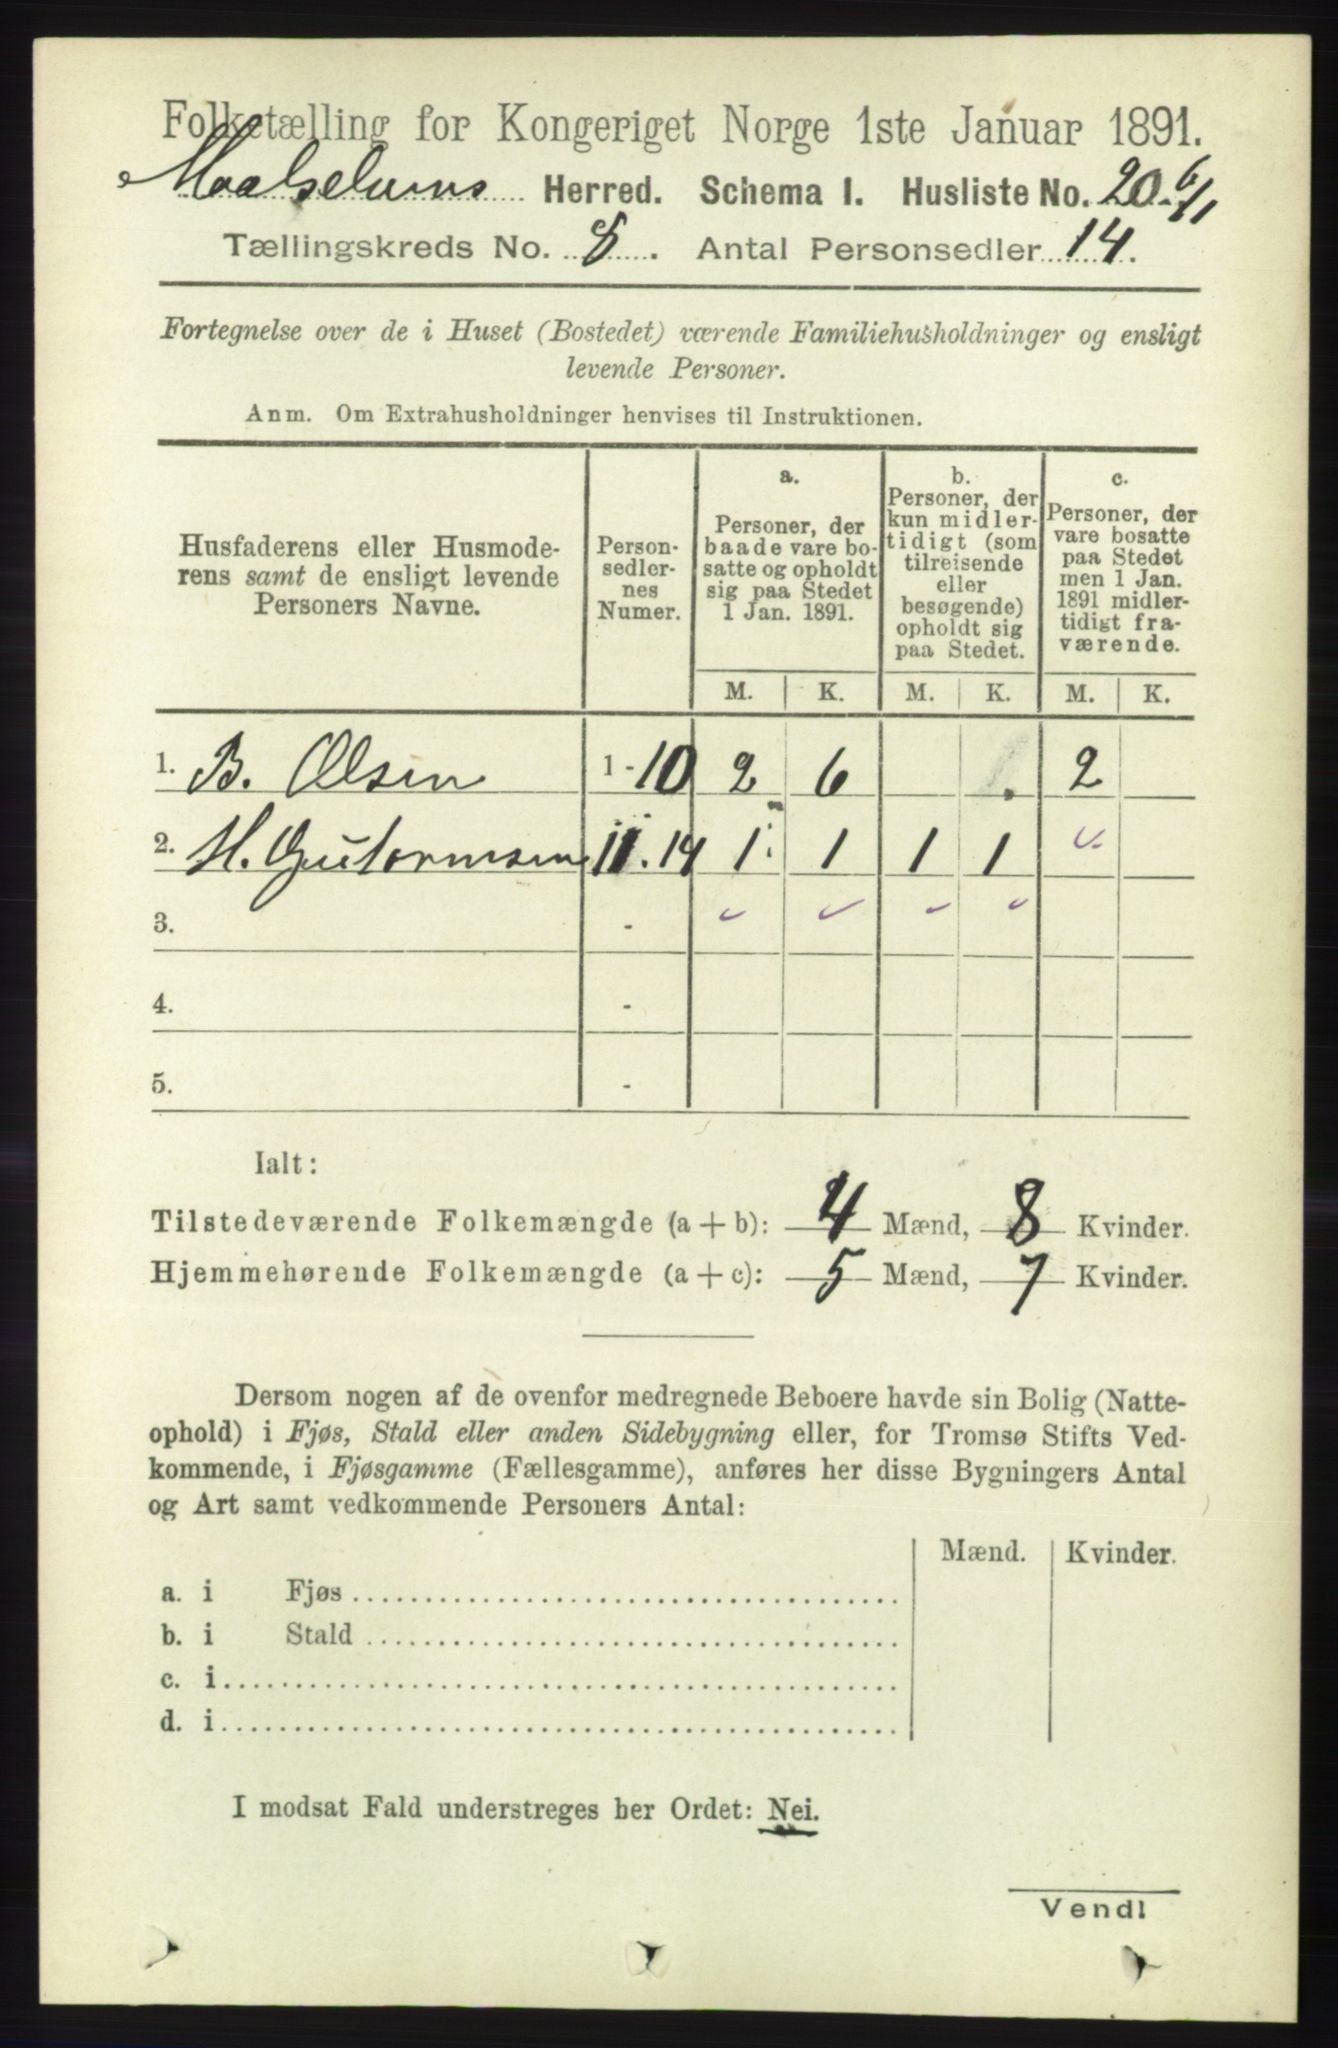 Folketælling for Kongeriget Norge 1ste Januar 1891.
Maalselvens Herred. Schema I. Husliste No. 20. 6/1
Tællingskreds No. 8. Antal Personsedler 14.
Fortegnelse over de i Huset (Bostedet) værende Familiehusholdninger og ensligt
levende Personer.
Anm. Om Extrahusholdninger henvises til Instruktionen.
Husfaderens eller Husmode-
rens samt de ensligt levende
Personers Navne.
Person-
sedler-
nes
Numer.
a.
Personer, der
baade vare bo-
satte og opholdt
sig paa Stedet
1 Jan. 1891.
b.
Personer, der
kun midler-
tidigt (som
tilreisende
eller
besøgende)
opholdt sig
paa Stedet.
c.
Personer, der
vare bosatte
paa Stedet
men 1 Jan.
1891 midler-
tidigt fra-
værende.
M. K. M. K. M. K.
1. B. Olsen 1-10 2 6 2
2. H. Gutormsen 11.14 1 1 1 1
3. -
4. -
5. -
Ialt:
Tilstedeværende Folkemængde (a + b): 4 Mænd, 8 Kvinder.
Hjemmehørende Folkemængde (a + c): 5 Mænd, 7 Kvinder.
Dersom nogen af de ovenfor medregnede Beboere havde sin Bolig (Natte-
ophold) i Fjøs, Stald eller anden Sidebygning eller, for Tromsø Stifts Ved-
kommende, i Fjøsgamme (Fællesgamme), anføres her disse Bygningers Antal
og Art samt vedkommende Personers Antal:
Mænd. Kvinder.
a. i Fjøs
b. i Stald
c. i
d. i
I modsat Fald understreges her Ordet: Nei.
Vendl